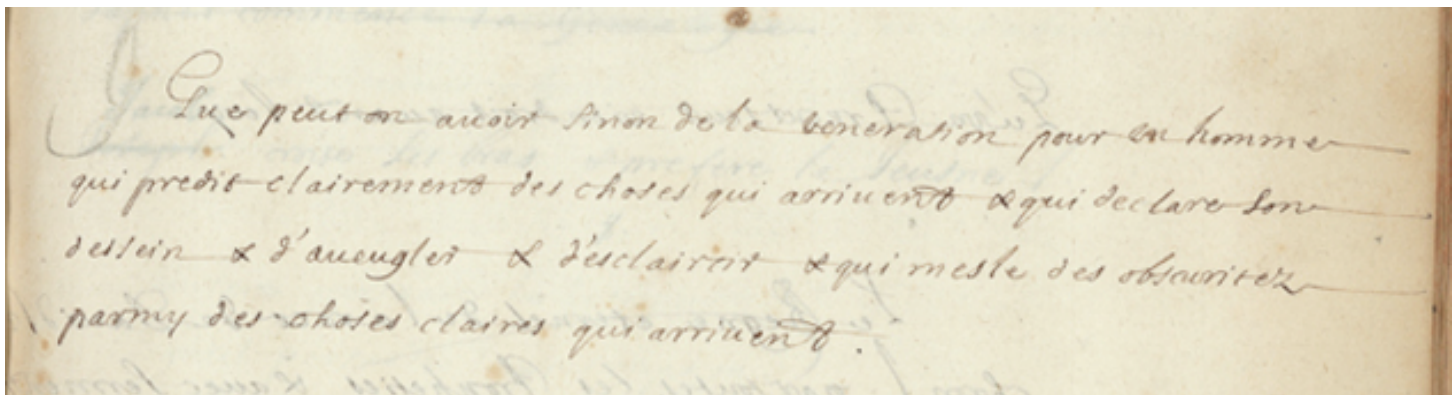 Que peut on auoir sinon de la veneration pour un homme
qui predit clairement des choses qui arriuent & qui declare son
dessein & d'aueugler & d'esclaircir & qui mesle des obscuritez
parmy des choses claires qui arriuent.